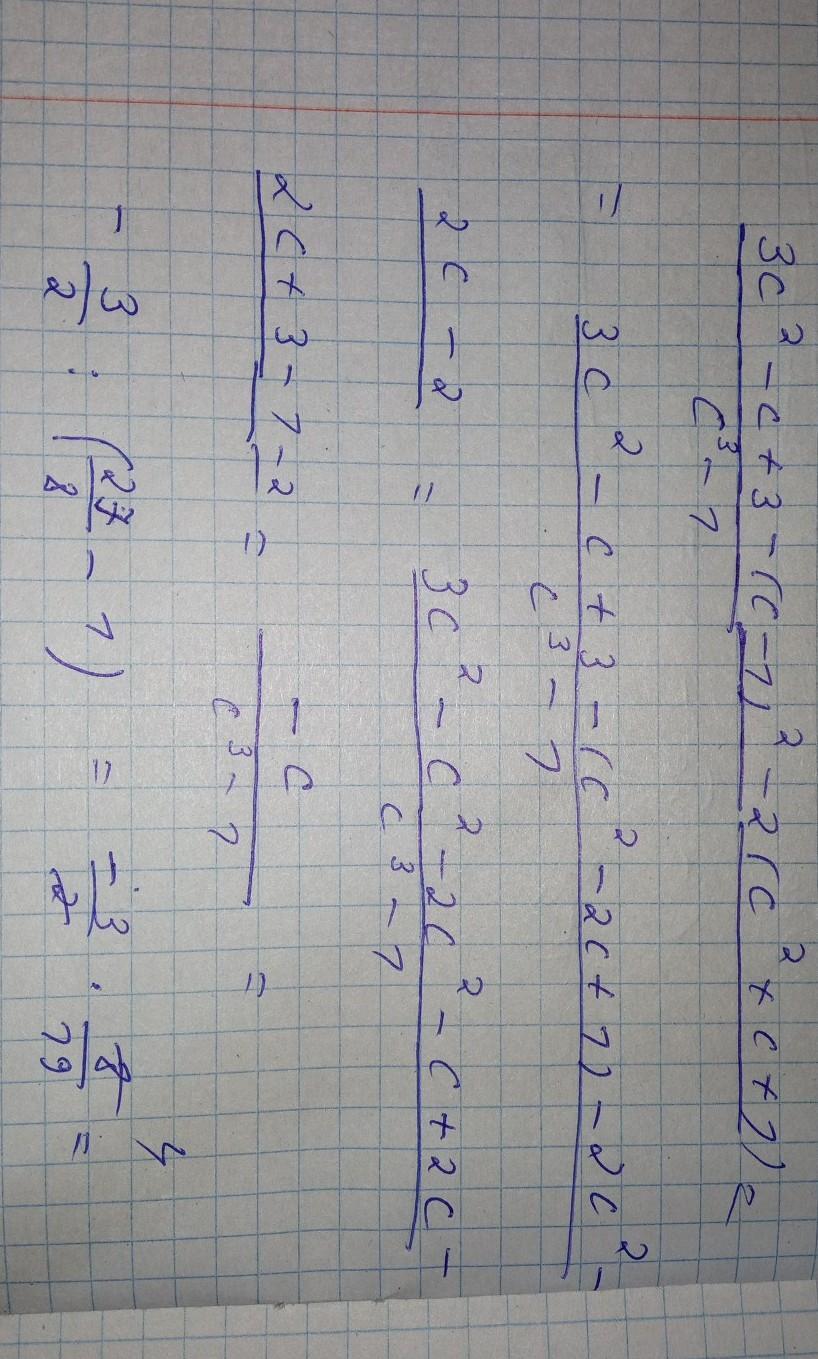 3c² - c + 3 - (c - 1)² - 2(c² + c + 1) =
c³ - 1
= 3c² - c + 3 - (c² - 2c + 1) - 2c² -
c³ - 1
2c - 2 = 3c² - c² - 2c² - c + 2c -
c³ - 1
2c + 3 - 1 - 2 = -c =
c³ - 1
4
- 3/2 : (27/8 - 1) = -3/2 · 8/19 =